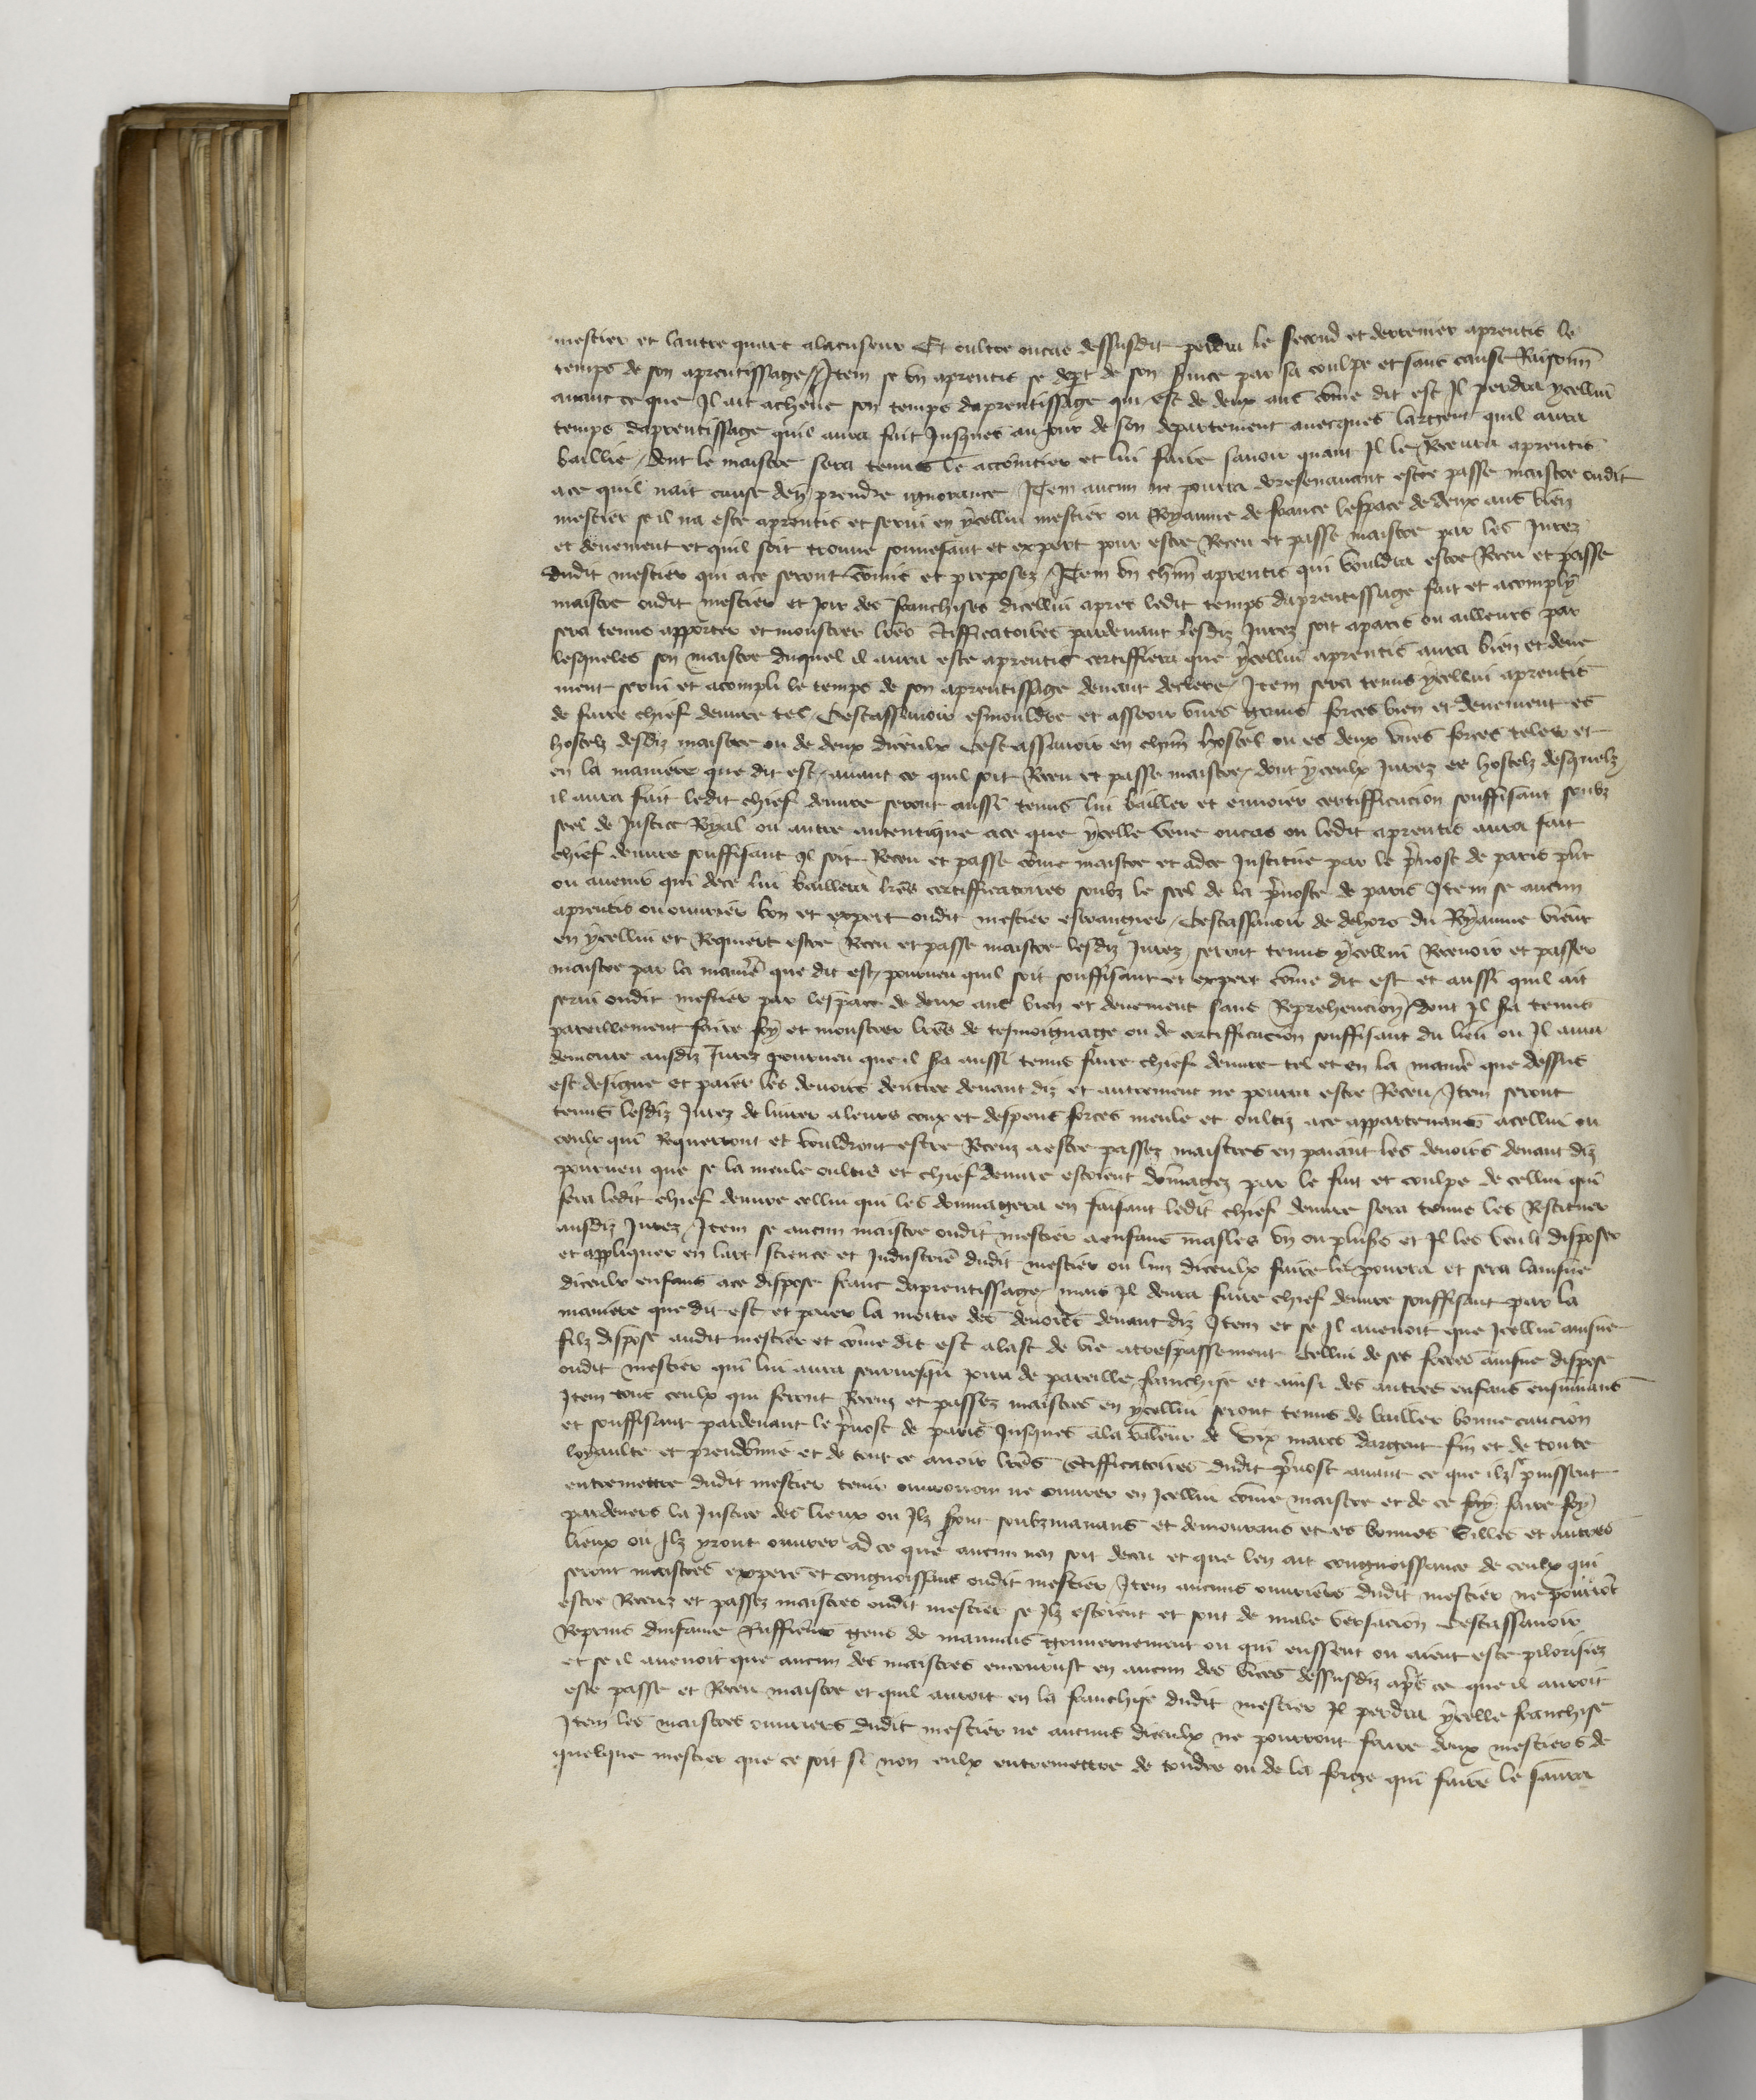 mestier et lautre quart alacuseur Et oultre oucas dessusdit perdra le second et derrenier aprentis le
temps de son aprentissage / Item se vn aprentis se dept de son suice par sa coulpe et sans cause Raisonn
auant ce que Il ait acheue son temps daprentissage qui est de deux ans cõme dit est Il perdra ycellui
temps daprentissage quil aura fait Jusques au jour de son departement auecques largent quil aura
baillie / dont le maistre sera tenus le accointier et lui faire sauoir quant Il le Receura aprentis
ace quil nait cause den prendre ignorance / Item aucun ne pourra doresenauant estre passe maistre oudit
mestier se il na este aprentis et serui en ycellui mestier ou Royaume de france lespace de deux ans bien
et deuement et quil soit trouue souffisant et expert pour estre Receu et passe maistre par les Jurez
dudit mestier qui ace seront cõmis et preposez / Item vn chũn aprentis qui vouldra estre Receu et passe
maistre oudit mestier et joir des franchises dicellui apres ledit temps daprentissage fait et acomply
sera tenus apporter et monstrer lrẽs ctifficatoires pardeuant lesdiz Jurez soit aparis ou ailleurs par
lesqueles son maistre duquel il aura este aprentis certiffiera que ycellui aprentis aura bien et deue
ment serui et acompli le temps de son aprentissage deuant declere / Item sera tenus ycellui aprentis
de faire chief deuure tel / Cestassauoir esmouldre et asseoir vnes grans forces bien et deuement es
hostelz desdiz maistre ou de deux diceulx cestassauoir en chũn hostel ou es deux vnes forces teles et
en la maniere que dit est / auant ce quil soit Receu et passe maistre / dont yceulx Jurez es hostelz desquelz
il aura fait ledit chief deuure seront aussi tenus lui bailler et enuoier certifficacion souffisant soubz
seel de Justice Royal ou autre autentique ace que ycelle veue oucas ou ledit aprentis aura fait
chief deuure souffisant ql soit Receu et passe cõme maistre et adce Institue par le pruost de paris pñt
ou auenir qui dece lui baillera lrẽs certifficatoires soubz le seel de la pruoste de paris Item se aucun
aprentis ou ouurier bon et expert oudit mestier estrangier / Cestassauoir de dehors du Royaume vient
en ycellui et Requiert estre Receu et passe maistre lesdiz Jurez seront tenus ycellui Receuoir et passer
maistre par la manie que dit est / pourueu quil soit souffisant et expert cõme dit est et aussi quil ait
serui oudit mestier par lespace de deux ans bien et deuement sans Reprehencion / dont Il sa tenus
pareillement faire foy et monstrer lrẽs de tesmoignage ou de certifficacion souffisant du lieu ou Il aura
demoure ausdiz Jurez pourueu que il sa aussi tenus faire chief deuure tel et en la manie que dessus
est designe et paier les deuoirs dentree deuant diz et autrement ne pourra estre Receu / Item seront
tenus lesdiz Jurez de liurer aleurs coux et despens forces meule et oultiz ace appartenans acellui ou
ceulx qui Requerront et vouldront estre Receuz aestre passez maistres en paiant les deuoirs deuant diz
pourueu que se la meule oultis et chief deuure estoient dõmagez par le fait et coulpe de cellui qui
fera ledit chief deuure cellui qui les dommagera en faisant ledit chief deuure sera tenus les Restituer
ausdiz Jurez / Item se aucun maistre oudit mestier a enfans masles vn ou plusrs et Il les veult disposer
et appliquer en lart science et Industrie dudit mestier ou lun diceulx faire le pourra et sera lainsne
diceulx enfans ace dispose franc daprentissage / mais Il deura faire chief deuure souffisant par la
maniere que dit est et paier la moitie des deuoirs deuant diz Item et se Il auenoit que Icellui ainsne
filz dispose audit mestier et cõme dit est alast de vie atrespassement Cellui de ses freres ainsne dispose
oudit mestier qui lui aura seurvesqu joira de pareille franchise et ainsi des autres enfans ensuiuans
Item tous ceulx qui seront Receuz et passez maistres en ycellui seront tenus de bailler bonne caucion
et souffisant pardeuant le pruost de paris Jusques ala valeur de dix marcs dargent fin et de toute
loyaulte et preudõme et de tout ce auoir lrẽs ctifficatoires dudit pruost auant ce que ilz puissent
entremettre dudit mestier tenir ouurouoir ne ouurer en Icellui cõme maistre et de ce foy faire foy
pardeuers la Justice des lieux ou Ilz sont soubzmanans et demourans et es bonnes villes et autres
lieux ou Ilz yront ouurer ad ce que aucun nen soit deceu et que len ait congnoissance de ceulx qui
seront maistres expers et congnoissans oudit mestier Item aucuns ouuriers dudit mestier ne pourrõt
estre Receuz et passez maistres oudit mestier se Ilz estoient et sont de male versacion Cestassauoir
Reprins dinfame Ruffiens gens de mauuais gouuernement ou qui eussent ou aient este pilorisiez
et se il auenoit que aucun des maistres encourust en aucun des vices dessusdiz apres ce que il auroit
este passe et Receu maistre et quil auroit en la franchise dudit mestier Il perdra ycelle franchise
Item les maistres ouuriers dudit mestier ne aucuns diceulx ne pourront faire deux mestiers de
quelque mestier que ce soit si non eulx entremettre de tondre ou de la forge qui faire le saura